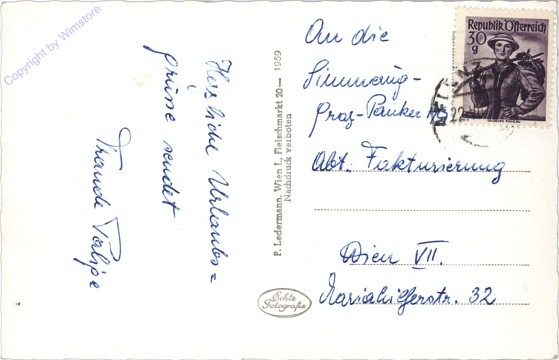 Copyright by Wimstore
Herzliche Urlaubs=
grüsse sendet
Traude
P. Ledermann, Wien I., Fleischmarkt 20— 1959
Nachdruck verboten
Echte
Fotografie
Republik Österreich
30
g
An die
Simmering-
Graz-Pauker AG
Abt. Fakturierung
Wien VII.
Mariahilferstr. 32